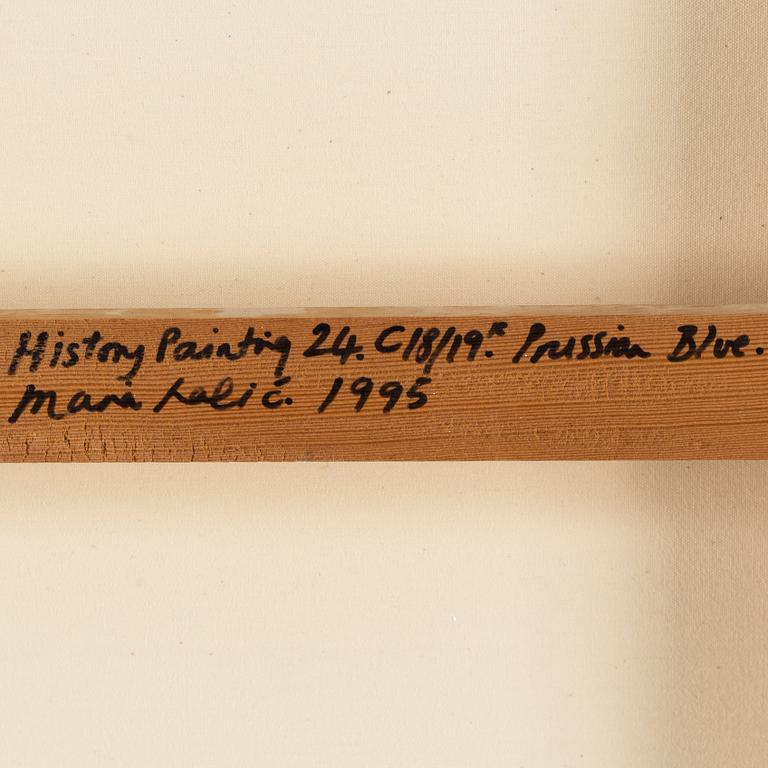 History Painting 24. C18/19th Prussian Blue.
Maria Lalić. 1995